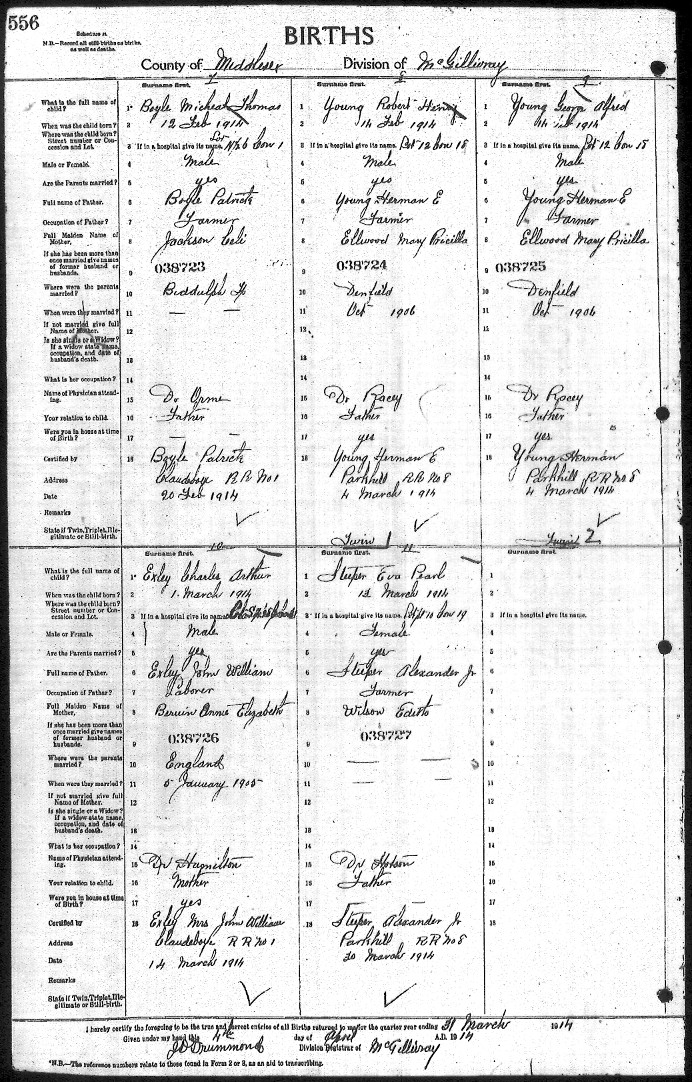 556
Schedule A.
N.B.—Record all still-births as births,
as well as deaths.
BIRTHS
County of Middlesex Division of McGillivray
7 8 9
Surname first. Surname first. Surname first.
What is the full name of child? 1* Boyle Micheal Thomas 1 Young Robert Henry 1 Young George Alfred
When was the child born? 2 12 Feb 1914 2 14 Feb 1914 2 14 Feb 1914
Where was the child born? Street number or Concession and Lot. 3 If in a hospital give its name. Lot Con 1 3 If in a hospital give its name. Lot 12 Con 18 3 If in a hospital give its name. Lot 12 Con 18
Male or Female. 4 Male 4 Male 4 Male
Are the Parents married? 5 yes 5 yes 5 yes
Full name of Father. 6 Boyle Patrick 6 Young Herman E 6 Young Herman E
Occupation of Father? 7 Farmer 7 Farmer 7 Farmer
Full Maiden Name of Mother. 8 Jackson Celi 8 Ellwood Mary Pricilla 8 Ellwood Mary Pricilla
If she has been more than once married give names of former husband or husbands. 9 038723 9 038724 9 038725
Where were the parents married? 10 Biddulph Tp 10 Denfield 10 Denfield
When were they married? 11 — — 11 Oct 1906 11 Oct 1906
If not married give full Name of Mother. 12 12 12
Is she single or a Widow? If a widow state name, occupation, and date of husband's death. 13 13 13
What is her occupation? 14 14 14
Name of Physician attending. 15 Dr Orme 15 Dr Racey 15 Dr Racey
Your relation to child. 16 Father 16 Father 16 Father
Were you in house at time of Birth? 17 — — 17 yes 17 yes
Certified by 18 Boyle Patrick 18 Young Herman E 18 Young Herman
Address Claudeboye R R No 1 Parkhill R R No 8 Parkhill R R No 8
Date 20 Feb 1914 4 March 1914 4 March 1914
Remarks
State if Twin, Triplet, Illegitimate or Still-birth. Twin 1 Twin 2
10 11
Surname first. Surname first. Surname first.
What is the full name of child? 1* Exley Charles Arthur 1 Steeper Eva Pearl 1
When was the child born? 2 1 March 1914 2 12 March 1914 2
Where was the child born? Street number or Concession and Lot. 3 If in a hospital give its name. 3 If in a hospital give its name. Lot 10 Con 19 3 If in a hospital give its name.
Male or Female. 4 Male 4 Female 4
Are the Parents married? 5 yes 5 yes 5
Full name of Father. 6 Exley John William 6 Steeper Alexander Jr 6
Occupation of Father? 7 Laborer 7 Farmer 7
Full Maiden Name of Mother. 8 Annie Elizabeth 8 Wilson Edith 8
If she has been more than once married give names of former husband or husbands. 9 038726 9 038727 9
Where were the parents married? 10 England 10 — — 10
When were they married? 11 5 January 1905 11 — — 11
If not married give full Name of Mother. 12 12 12
Is she single or a Widow? If a widow state name, occupation, and date of husband's death. 13 13 13
What is her occupation? 14 14 14
Name of Physician attending. 15 Dr Hamilton 15 Dr Hotson 15
Your relation to child. 16 Mother 16 Father 16
Were you in house at time of Birth? 17 yes 17 17
Certified by 18 Exley Mrs John William 18 Steeper Alexander Jr 18
Address Claudeboye R R No 1 Parkhill R R No 8
Date 14 March 1914 30 March 1914
Remarks
State if Twin, Triplet, Illegitimate or Still-birth.
I hereby certify the foregoing to be the true and correct entries of all Births returned to me for the quarter year ending 31 March 1914
Given under my hand this 4th day of April A.D. 1914
J D Drummond Division Registrar of McGillivray
*N.B.—The reference numbers relate to those found in Form 2 or 3, as an aid to transcribing.